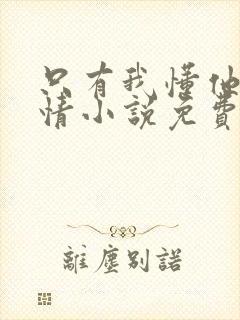 只有我懂他
情小说免費
離塵別諾